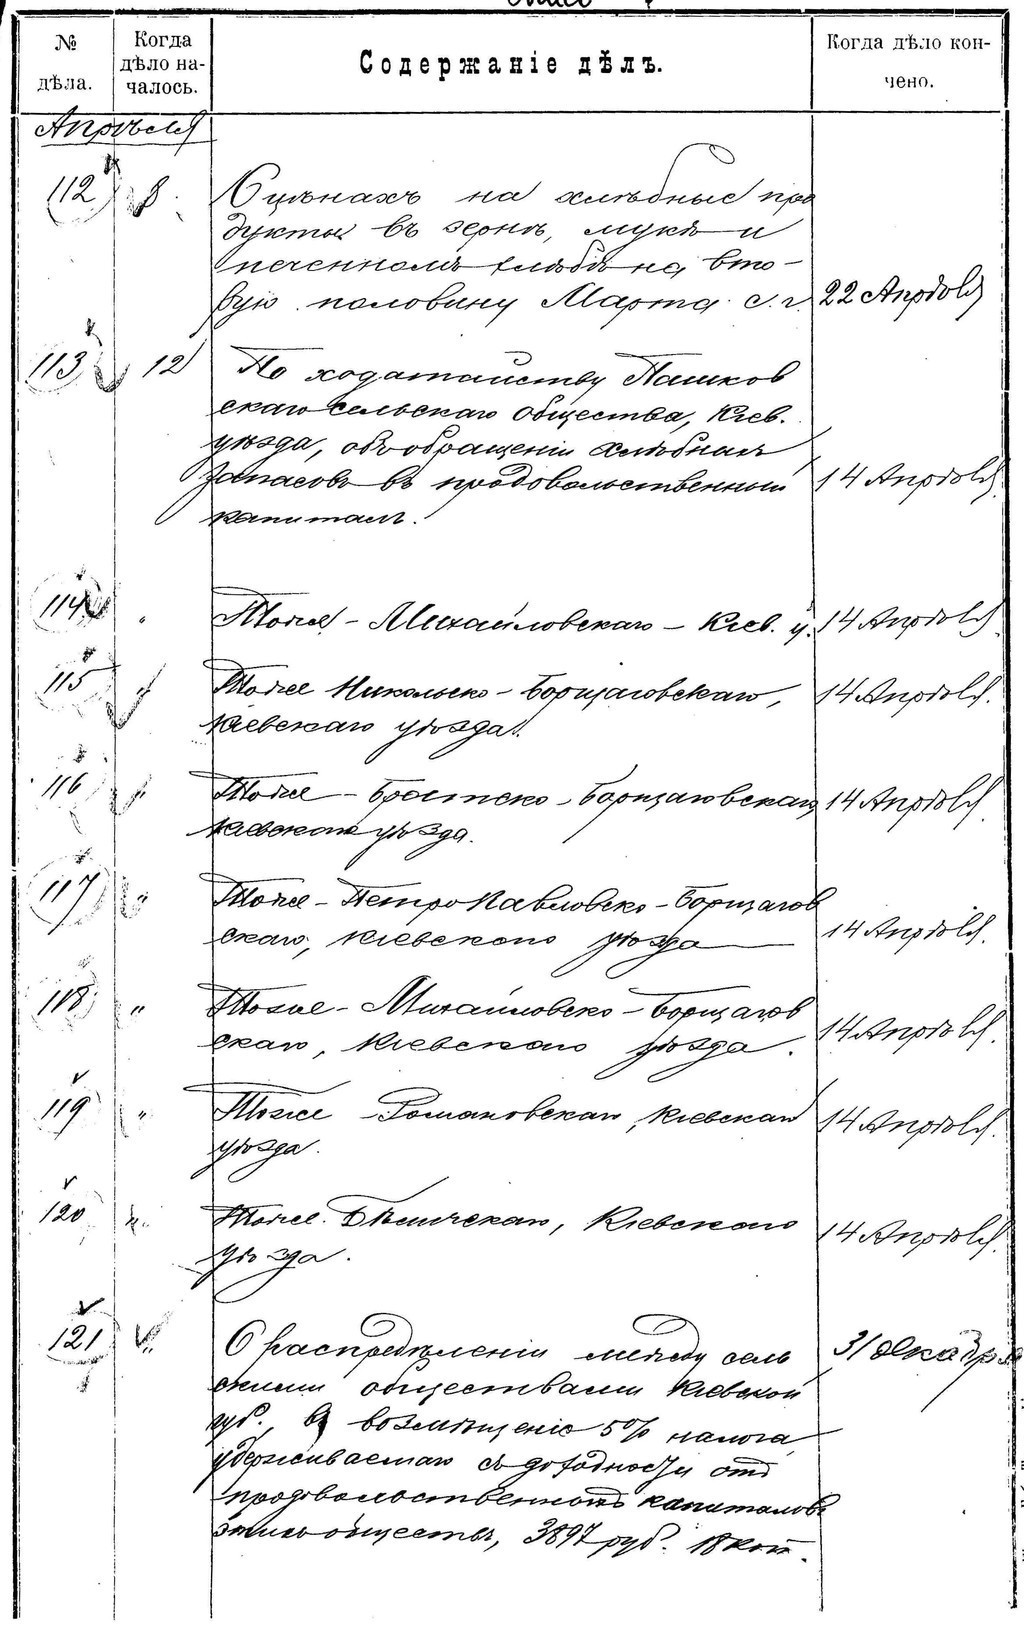 № дѣла.
Когда дѣло началось.
Содержаніе дѣлъ.
Когда дѣло кончено.
Апрѣля
112 8. О цѣнахъ на хлѣбные про
дукты въ зернѣ, мукѣ и
печенномъ хлѣбѣ на вто-
рую половину Марта с. г. 22 Апрѣля
113 12 По ходатайству Пашков
скаго сельскаго общества, Кіев.
уѣзда, объ обращеніи хлѣбныхъ
запасовъ въ продовольственный 14 Апрѣля
капиталъ.
114 " Тоже - Михайловскаго - Кіев. у. 14 Апрѣля
115 " Тоже Никольско - Борщаговскаго, 14 Апрѣля.
Кіевскаго уѣзда.
116 " Тоже - Братско - Борщаговскаго 14 Апрѣля.
Кіевскаго уѣзда.
117 " Тоже - Петропавловско - Борщагов
скаго, Кіевского уѣзда 14 Апрѣля.
118 " Тоже - Михайловско - Борщагов
скаго, Кіевского уѣзда. 14 Апрѣля.
119 " Тоже Романовскаго, Кіевскаго 14 Апрѣля.
уѣзда.
120 " Тоже. Бѣличскаго, Кіевского 14 Апрѣля.
уѣзда.
121 О распредѣленіи между сель 31 декабря
скими обществами Кіевской
губ., въ возмѣщеніе 5% налога,
удерживаемаго съ доходности отъ
продовольственныхъ капиталовъ
этихъ обществъ, 3897 руб. 18 коп.